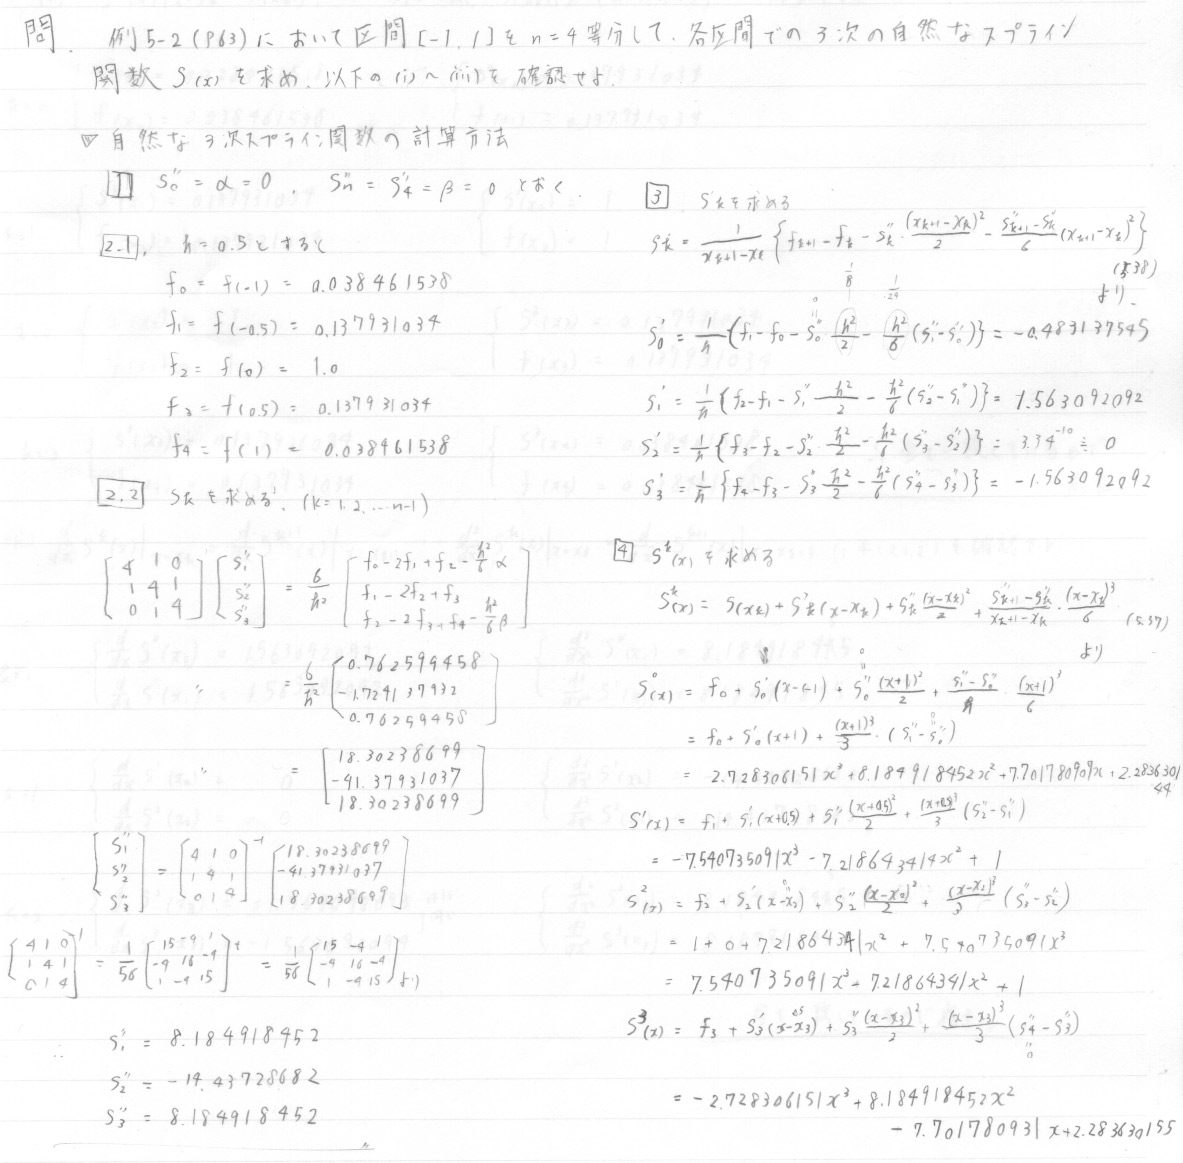 問. 例5-2 (P63) において区間 [-1, 1] を n=4 等分して、各区間での 3次の自然なスプライン
関数 S(x) を求め、以下の (i) ~ (iii) を 確認せよ.
▽ 自然な 3次スプライン関数の計算方法
1 S₀'' = α = 0 , Sn'' = S₄'' = β = 0 とおく.
2.1. h = 0.5 とすると
f₀ = f(-1) = 0.038461538
f₁ = f(-0.5) = 0.137931034
f₂ = f(0) = 1.0
f₃ = f(0.5) = 0.137931034
f₄ = f(1) = 0.038461538
2.2 Sk''を求める. (k=1, 2, … n-1)
[4 1 0; 1 4 1; 0 1 4] [S₁''; S₂''; S₃''] = 6/h² [f₀-2f₁+f₂-h²/6 α; f₁-2f₂+f₃; f₂-2f₃+f₄-h²/6 β]
〃 = 6/h² [0.762599458; -1.724137932; 0.762599458]
〃 = [18.30238699; -41.37931037; 18.30238699]
[S₁''; S₂''; S₃''] = [4 1 0; 1 4 1; 0 1 4]⁻¹ [18.30238699; -41.37931037; 18.30238699]
[4 1 0; 1 4 1; 0 1 4]⁻¹ = 1/56 [15 -4 1; -4 16 -4; 1 -4 15]ᵗ = 1/56 [15 -4 1; -4 16 -4; 1 -4 15] より
∴ S₁'' = 8.184918452
S₂'' = -14.43728682
S₃'' = 8.184918452
3 S'kを求める
S'k = 1/(xk+1-xk) {fk+1-fk-Sk''·(xk+1-xk)²/2 - (Sk+1''-Sk'')/6 (xk+1-xk)²}
(5.38)
より、
S₀' = 1/h {f₁-f₀-S₀''·h²/2 - h²/6 (S₁''-S₀'')} = -0.483137545
S₁' = 1/h {f₂-f₁-S₁'' h²/2 - h²/6 (S₂''-S₁'')} = 1.563092092
S₂' = 1/h {f₃-f₂-S₂''·h²/2 - h²/6 (S₃''-S₂'')} = 3.34⁻¹⁰ ≒ 0
S₃' = 1/h {f₄-f₃-S₃'' h²/2 - h²/6 (S₄''-S₃'')} = -1.563092092
4 Sᵏ(x) を求める
Sᵏ(x) = S(xk) + S'k (x-xk) + Sk'' (x-xk)²/2 + (Sk+1''-Sk'')/(xk+1-xk) · (x-xk)³/6 (5.37)
より
S⁰(x) = f₀ + S₀'(x-(-1)) + S₀'' (x+1)²/2 + (S₁''-S₀'')/h · (x+1)³/6
= f₀ + S₀'(x+1) + (x+1)³/3 · (S₁''-S₀'')
= 2.728306151x³ + 8.184918452x² + 7.701780909x + 2.283630144
S¹(x) = f₁ + S₁'(x+0.5) + S₁'' (x+0.5)²/2 + (x+0.5)³/3 (S₂''-S₁'')
= -7.540735091x³ - 7.218643414x² + 1
S²(x) = f₂ + S₂'(x-x₂) + S₂'' (x-x₂)²/2 + (x-x₂)³/3 (S₃''-S₂'')
= 1 + 0 + 7.21864341x² + 7.540735091x³
= 7.540735091x³ + 7.21864341x² + 1
S³(x) = f₃ + S₃'(x-x₃) + S₃'' (x-x₃)²/2 + (x-x₃)³/3 (S₄''-S₃'')
= -2.728306151x³ + 8.184918452x²
- 7.701780931x + 2.283630155